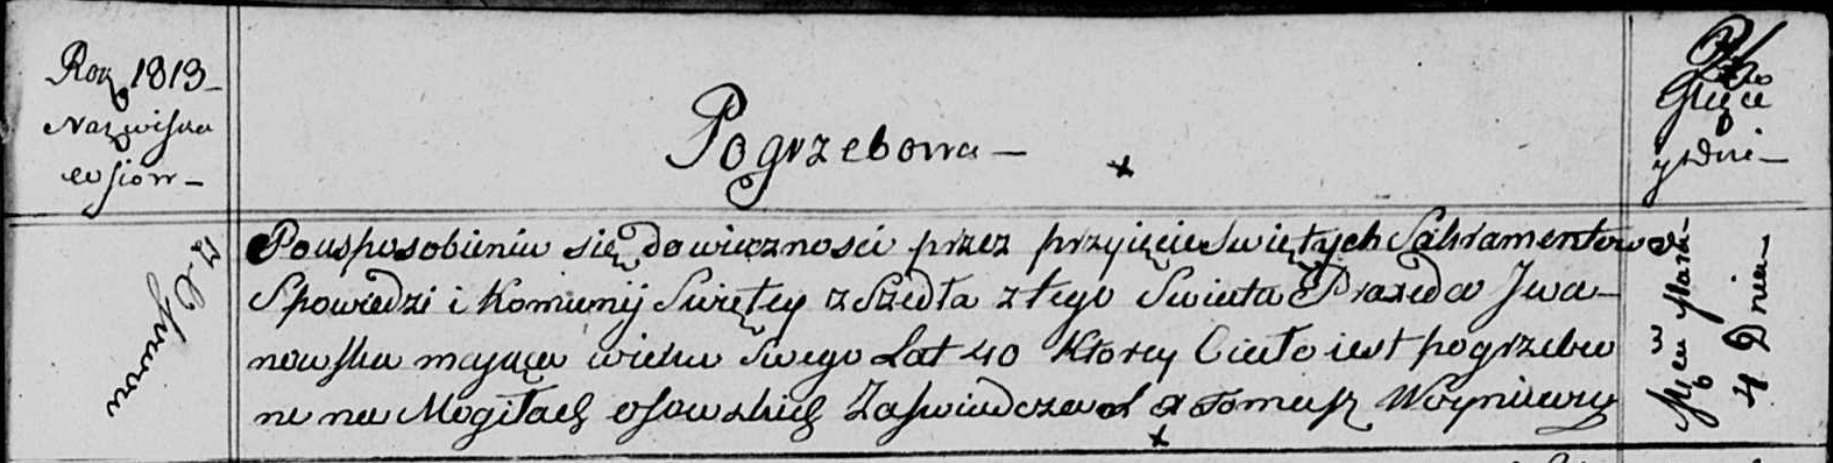 Rok 1813
Nazwiska
wsiow
Pogrzebowa
y Dni
Po usposobieniu się do wieczności przez przyięcie Swiętych Sakramentow
Spowiedzi i Komunij Swiętey z Szedła z tego Swiata Praxeda Iwa-
nowska maiąca wieku swego Lat 40 Ktorey Ciało iest pogrzebio
ne na Mogiłach osowskich Zaswiadczam X Tomasz Woyniewicz
3 Mca Mara-
4 Dnia